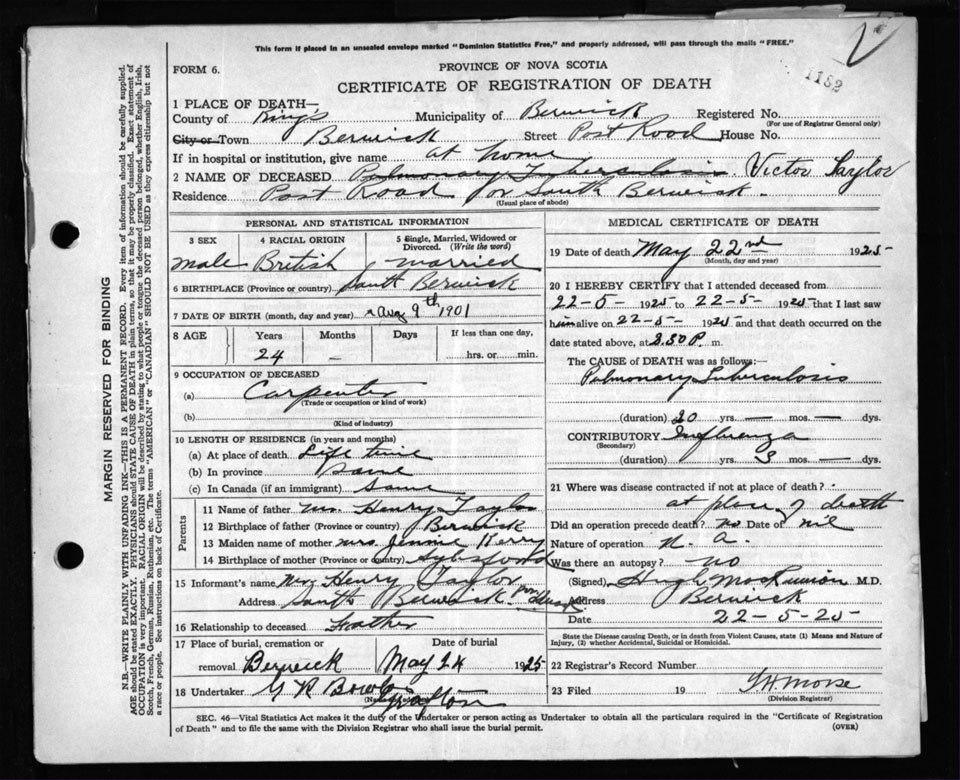 This form if placed in an unsealed envelope marked "Dominion Statistics Free," and properly addressed, will pass through the mails "FREE."
1182
FORM 6.
PROVINCE OF NOVA SCOTIA
CERTIFICATE OF REGISTRATION OF DEATH
1 PLACE OF DEATH—
County of Kings Municipality of Berwick Registered No.
(For use of Registrar General only)
City or Town Berwick Street Post Road House No.
If in hospital or institution, give name at home
2 NAME OF DECEASED Pulmonary Tuberculosis. Victor Taylor
Residence Post Road for South Berwick.
(Usual place of abode)
PERSONAL AND STATISTICAL INFORMATION
3 SEX 4 RACIAL ORIGIN 5 Single, Married, Widowed or Divorced. (Write the word)
male British married
6 BIRTHPLACE (Province or country) South Berwick
7 DATE OF BIRTH (month, day and year) Aug 9th 1901
8 AGE Years Months Days If less than one day,
24 – hrs. or min.
9 OCCUPATION OF DECEASED
(a) Carpenter
(Trade or occupation or kind of work)
(b)
(Kind of industry)
10 LENGTH OF RESIDENCE (in years and months)
(a) At place of death Life time
(b) In province Same
(c) In Canada (if an immigrant) Same
Parents
11 Name of father Mr. Henry Taylor
12 Birthplace of father (Province or country) Berwick
13 Maiden name of mother Mrs Jennie Kerry
14 Birthplace of mother (Province or country)
15 Informant's name Henry Taylor
Address South Berwick
16 Relationship to deceased Father
17 Place of burial, cremation or removal Date of burial
Berwick May 24 1925
18 Undertaker G R Grafton
MEDICAL CERTIFICATE OF DEATH
19 Date of death May 22nd 1925
(Month, day and year)
20 I HEREBY CERTIFY that I attended deceased from
22-5- 1925 to 22-5- 1925 that I last saw
him alive on 22-5- 1925 and that death occurred on the
date stated above, at P. m.
The CAUSE of DEATH was as follows:—
Pulmonary Tuberculosis
(duration) 20 yrs. — mos. — dys.
CONTRIBUTORY Influenza
(Secondary)
(duration) yrs. 3 mos. — dys.
21 Where was disease contracted if not at place of death?
at place of death
Did an operation precede death? no Date of nil
Nature of operation N. A.
Was there an autopsy? no
(Signed) Hugh MacKinnon M.D.
Address Berwick
Date 22-5-25
State the Disease causing Death, or in death from Violent Causes, state (1) Means and Nature of Injury, (2) whether Accidental, Suicidal or Homicidal.
22 Registrar's Record Number
23 Filed 19 Morse
(Division Registrar)
SEC. 46—Vital Statistics Act makes it the duty of the Undertaker or person acting as Undertaker to obtain all the particulars required in the "Certificate of Registration
of Death" and to file the same with the Division Registrar who shall issue the burial permit.
(OVER)
MARGIN RESERVED FOR BINDING
N.B.—WRITE PLAINLY WITH UNFADING INK—THIS IS A PERMANENT RECORD. Every item of information should be carefully supplied.
AGE should be stated EXACTLY. PHYSICIANS should STATE CAUSE OF DEATH in plain terms, so that it may be properly classified. Exact statement of
OCCUPATION is very important. RACIAL ORIGIN will be described by stating to what people or tongue the deceased person belonged, whether English, Irish,
Scotch, French, German, Russian, Ruthenian, etc. The terms "AMERICAN" or "CANADIAN" SHOULD NOT BE USED as they express citizenship but not
a race or people. See instructions on back of Certificate.